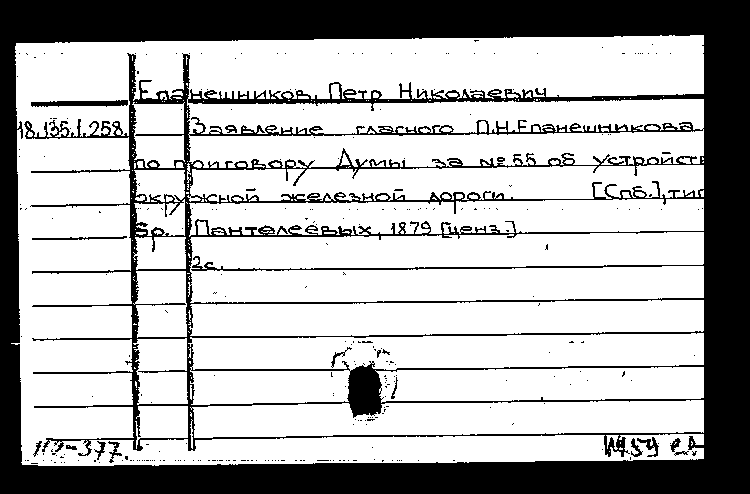 Епанешников, Петр Николаевич.
18.135.1.258. Заявление гласного П.Н.Епанешникова
по приговору Думы за № 55 об устройств
окружной железной дороги. [Спб.], тип
бр. Пантелеевых, 1879 [ценз.].
2с.
112-377.